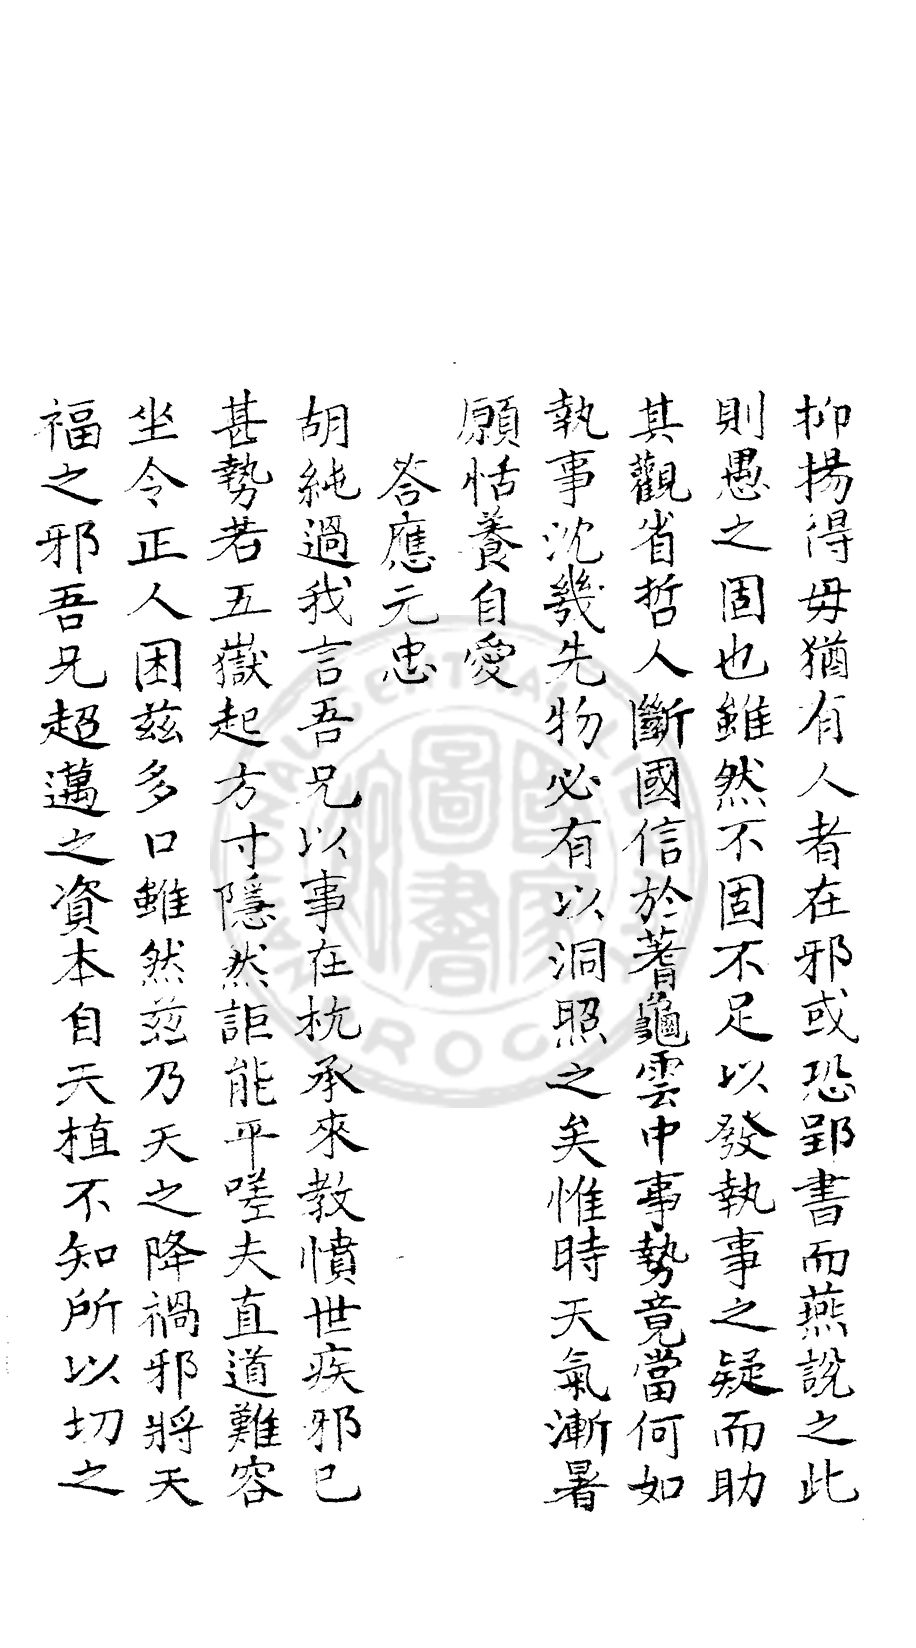 抑揚得毋猶有人者在邪或恐郢書而燕說之此
則愚之固也雖然不固不足以發執事之疑而助
其觀省哲人斷國信於蓍龜雲中事勢竟當何如
執事沈幾先物必有以洞照之矣惟時天氣漸暑
願恬養自愛
答應元忠
胡純過我言吾兄以事在杭承來教憤世疾邪已
甚勢若五嶽起方寸隱然詎能平嗟夫直道難容
坐令正人困茲多口雖然茲乃天之降禍邪將天
福之邪吾兄超邁之資本自天植不知所以切之